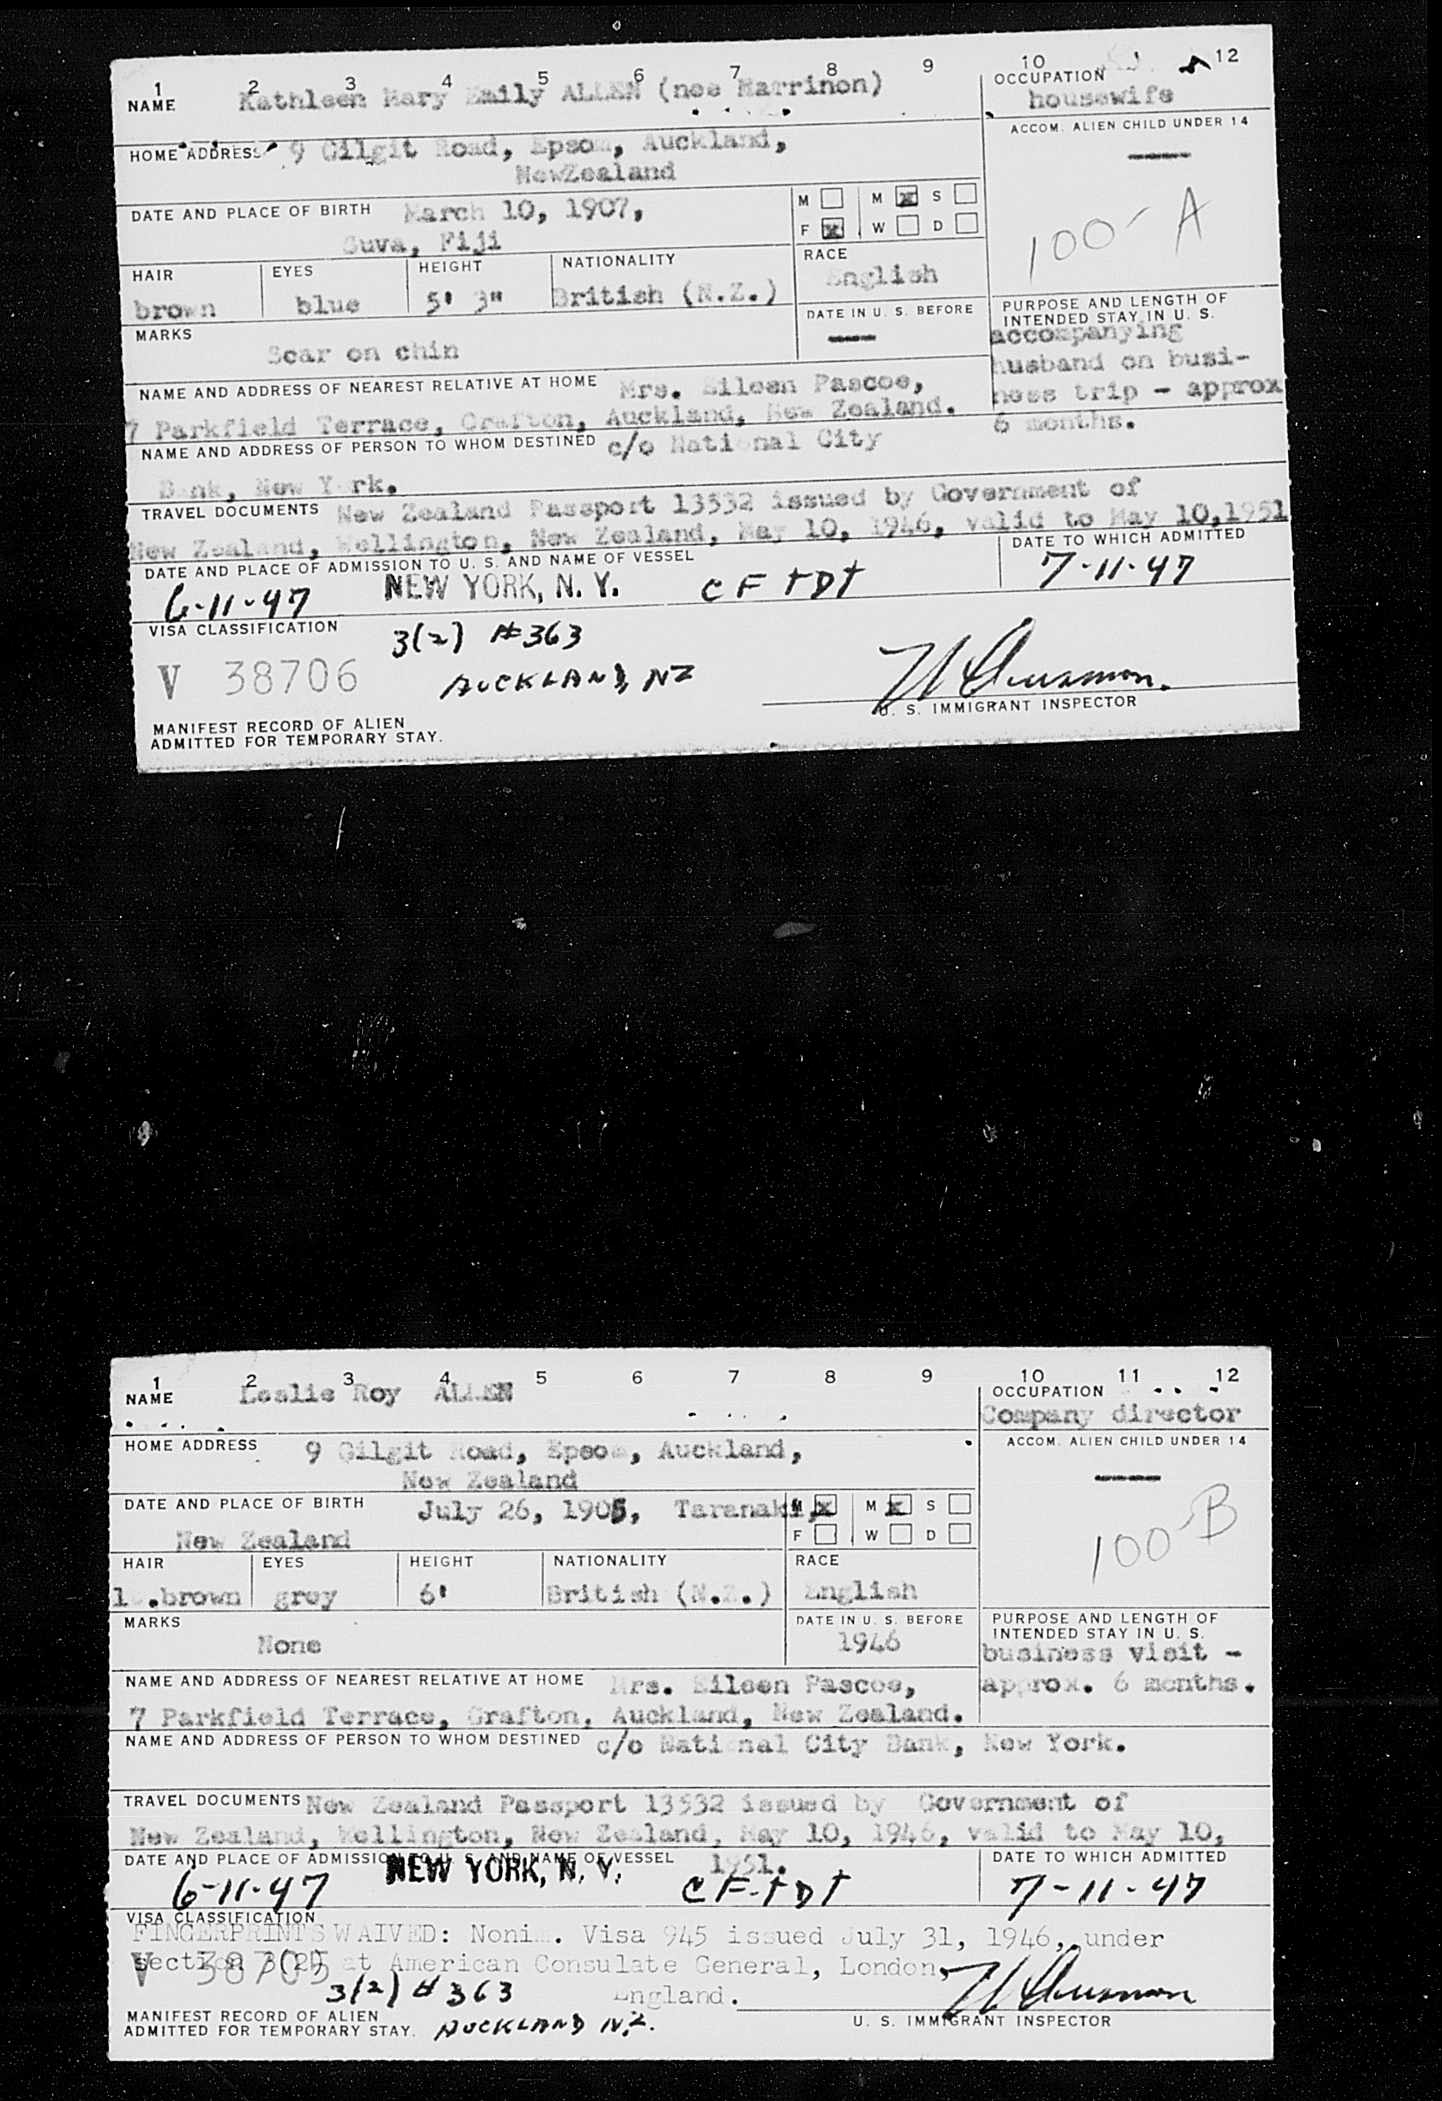 1 2 3 4 5 6 7 8 9 10 12
NAME Kathleen Mary Emily ALLEN (nee Marrinon)
OCCUPATION
housewife
HOME ADDRESS 9 Gilgit Road, Epsom, Auckland,
NewZealand
ACCOM. ALIEN CHILD UNDER 14
100-A
DATE AND PLACE OF BIRTH March 10, 1907,
Suva, Fiji
M M x S
F x W D
HAIR EYES HEIGHT NATIONALITY RACE
brown blue 5' 3" British (N.Z.) English
MARKS
Scar on chin
DATE IN U. S. BEFORE
PURPOSE AND LENGTH OF
INTENDED STAY IN U. S.
accompanying
husband on busi-
ness trip - approx
6 months.
NAME AND ADDRESS OF NEAREST RELATIVE AT HOME Mrs. Eileen Pascoe,
7 Parkfield Terrace, Grafton, Auckland, New Zealand.
NAME AND ADDRESS OF PERSON TO WHOM DESTINED c/o National City
Bank, New York.
TRAVEL DOCUMENTS New Zealand Passport 13532 issued by Government of
New Zealand, Wellington, New Zealand, May 10, 1946, valid to May 10,1951
DATE AND PLACE OF ADMISSION TO U. S. AND NAME OF VESSEL
6-11-47 NEW YORK, N. Y. CF TDT
DATE TO WHICH ADMITTED
7-11-47
VISA CLASSIFICATION
3(2) #363
V 38706 AUCKLAND, NZ
U. S. IMMIGRANT INSPECTOR
MANIFEST RECORD OF ALIEN
ADMITTED FOR TEMPORARY STAY.
1 2 3 4 5 6 7 8 9 10 11 12
NAME Leslie Roy ALLEN
OCCUPATION
Company director
HOME ADDRESS 9 Gilgit Road, Epsom, Auckland,
New Zealand
ACCOM. ALIEN CHILD UNDER 14
100-B
DATE AND PLACE OF BIRTH July 26, 1905, Taranaki,
New Zealand
M x M x S
F W D
HAIR EYES HEIGHT NATIONALITY RACE
brown grey 6' British (N.Z.) English
MARKS
None
DATE IN U. S. BEFORE
1946
PURPOSE AND LENGTH OF
INTENDED STAY IN U. S.
business visit -
approx. 6 months.
NAME AND ADDRESS OF NEAREST RELATIVE AT HOME Mrs. Eileen Pascoe,
7 Parkfield Terrace, Grafton, Auckland, New Zealand.
NAME AND ADDRESS OF PERSON TO WHOM DESTINED c/o National City Bank, New York.
TRAVEL DOCUMENTS New Zealand Passport 13532 issued by Government of
New Zealand, Wellington, New Zealand, May 10, 1946, valid to May 10,
1951.
DATE AND PLACE OF ADMISSION TO U. S. AND NAME OF VESSEL
6-11-47 NEW YORK, N. Y. CF-TDT
DATE TO WHICH ADMITTED
7-11-47
VISA CLASSIFICATION
FINGERPRINTS WAIVED: Nonim. Visa 945 issued July 31, 1946, under
section 3(2) at American Consulate General, London,
England.
V 38705
3(2) #363
AUCKLAND N.Z.
U. S. IMMIGRANT INSPECTOR
MANIFEST RECORD OF ALIEN
ADMITTED FOR TEMPORARY STAY.